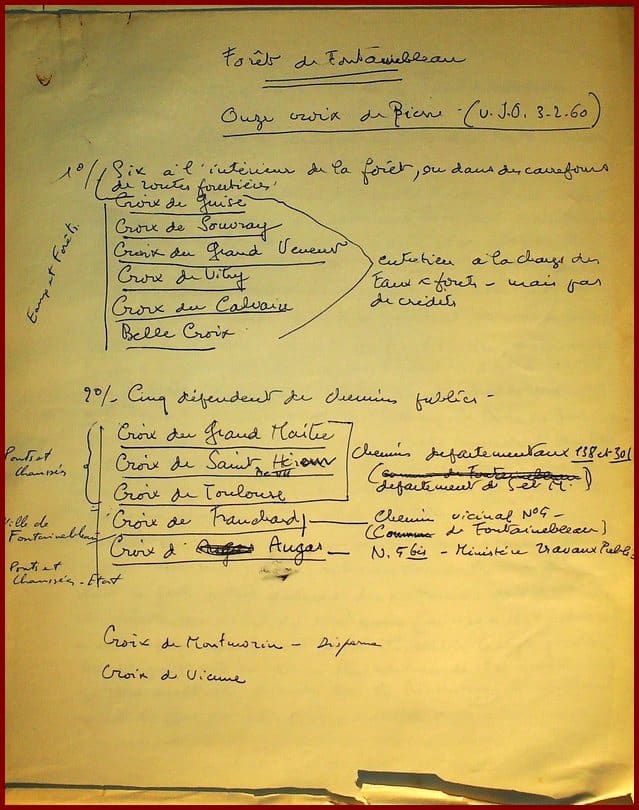 Forêt de Fontainebleau
Onze croix de Pierre - (V.J.O. 3-2-60)
1°/ Six à l'intérieur de la forêt, ou dans des carrefours
de routes forestières
Croix de Guise
Croix de Souvray
Croix du Grand Veneur
Croix de Vitry
Croix du Calvaire
Belle Croix
Eaux et Forêts
entretien à la charge des
Eaux & forêts - mais pas
de crédits
2°/- Cinq dépendent de chemins publics -
Croix du Grand Maître
Croix de Saint Hérem
Croix de Toulouse
Ponts et
Chaussées
Chemins départementaux 138 et 301
(commune de Fontainebleau)
département S et M.
Croix de Franchard
Ville de
Fontainebleau
Chemin vicinal N°9 -
(Commune de Fontainebleau)
Croix d'Augas
Ponts et
Chaussées - Etat
N. 5 bis - Ministère Travaux Publics
Croix de Montmorin - Disparue
Croix de Vienne